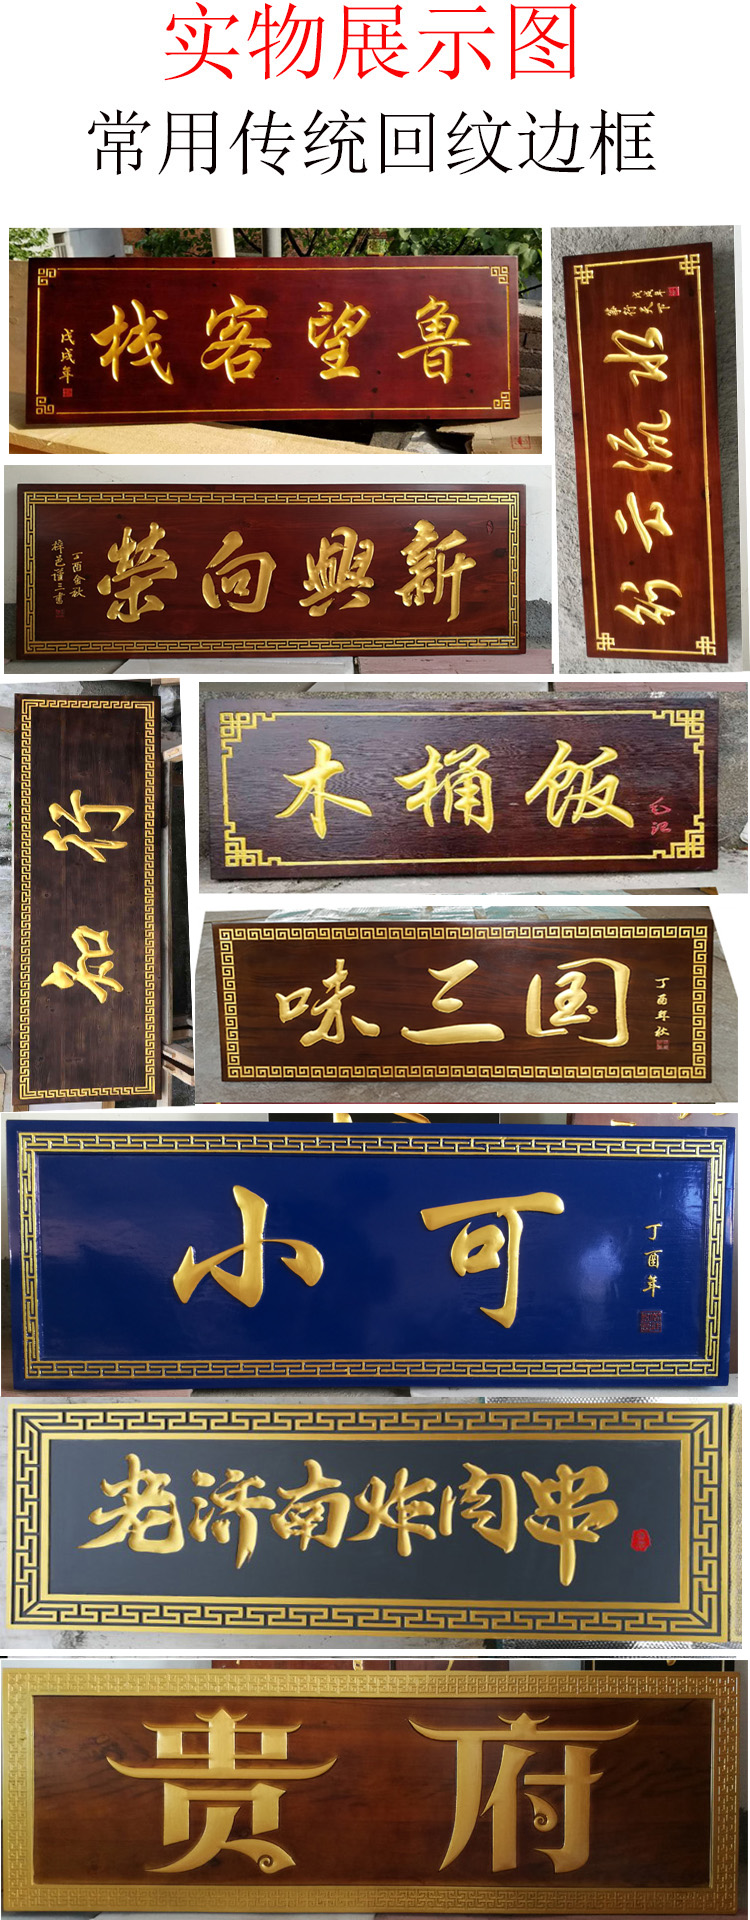 实物展示图
常用传统回纹边框
鲁望客栈
戊戌年
行云流水
戊戌年
新興向榮
丁酉金秋
知行
木桶饭
味三国
丁酉年秋
小可
丁酉年
老济南炸肉串
贵府